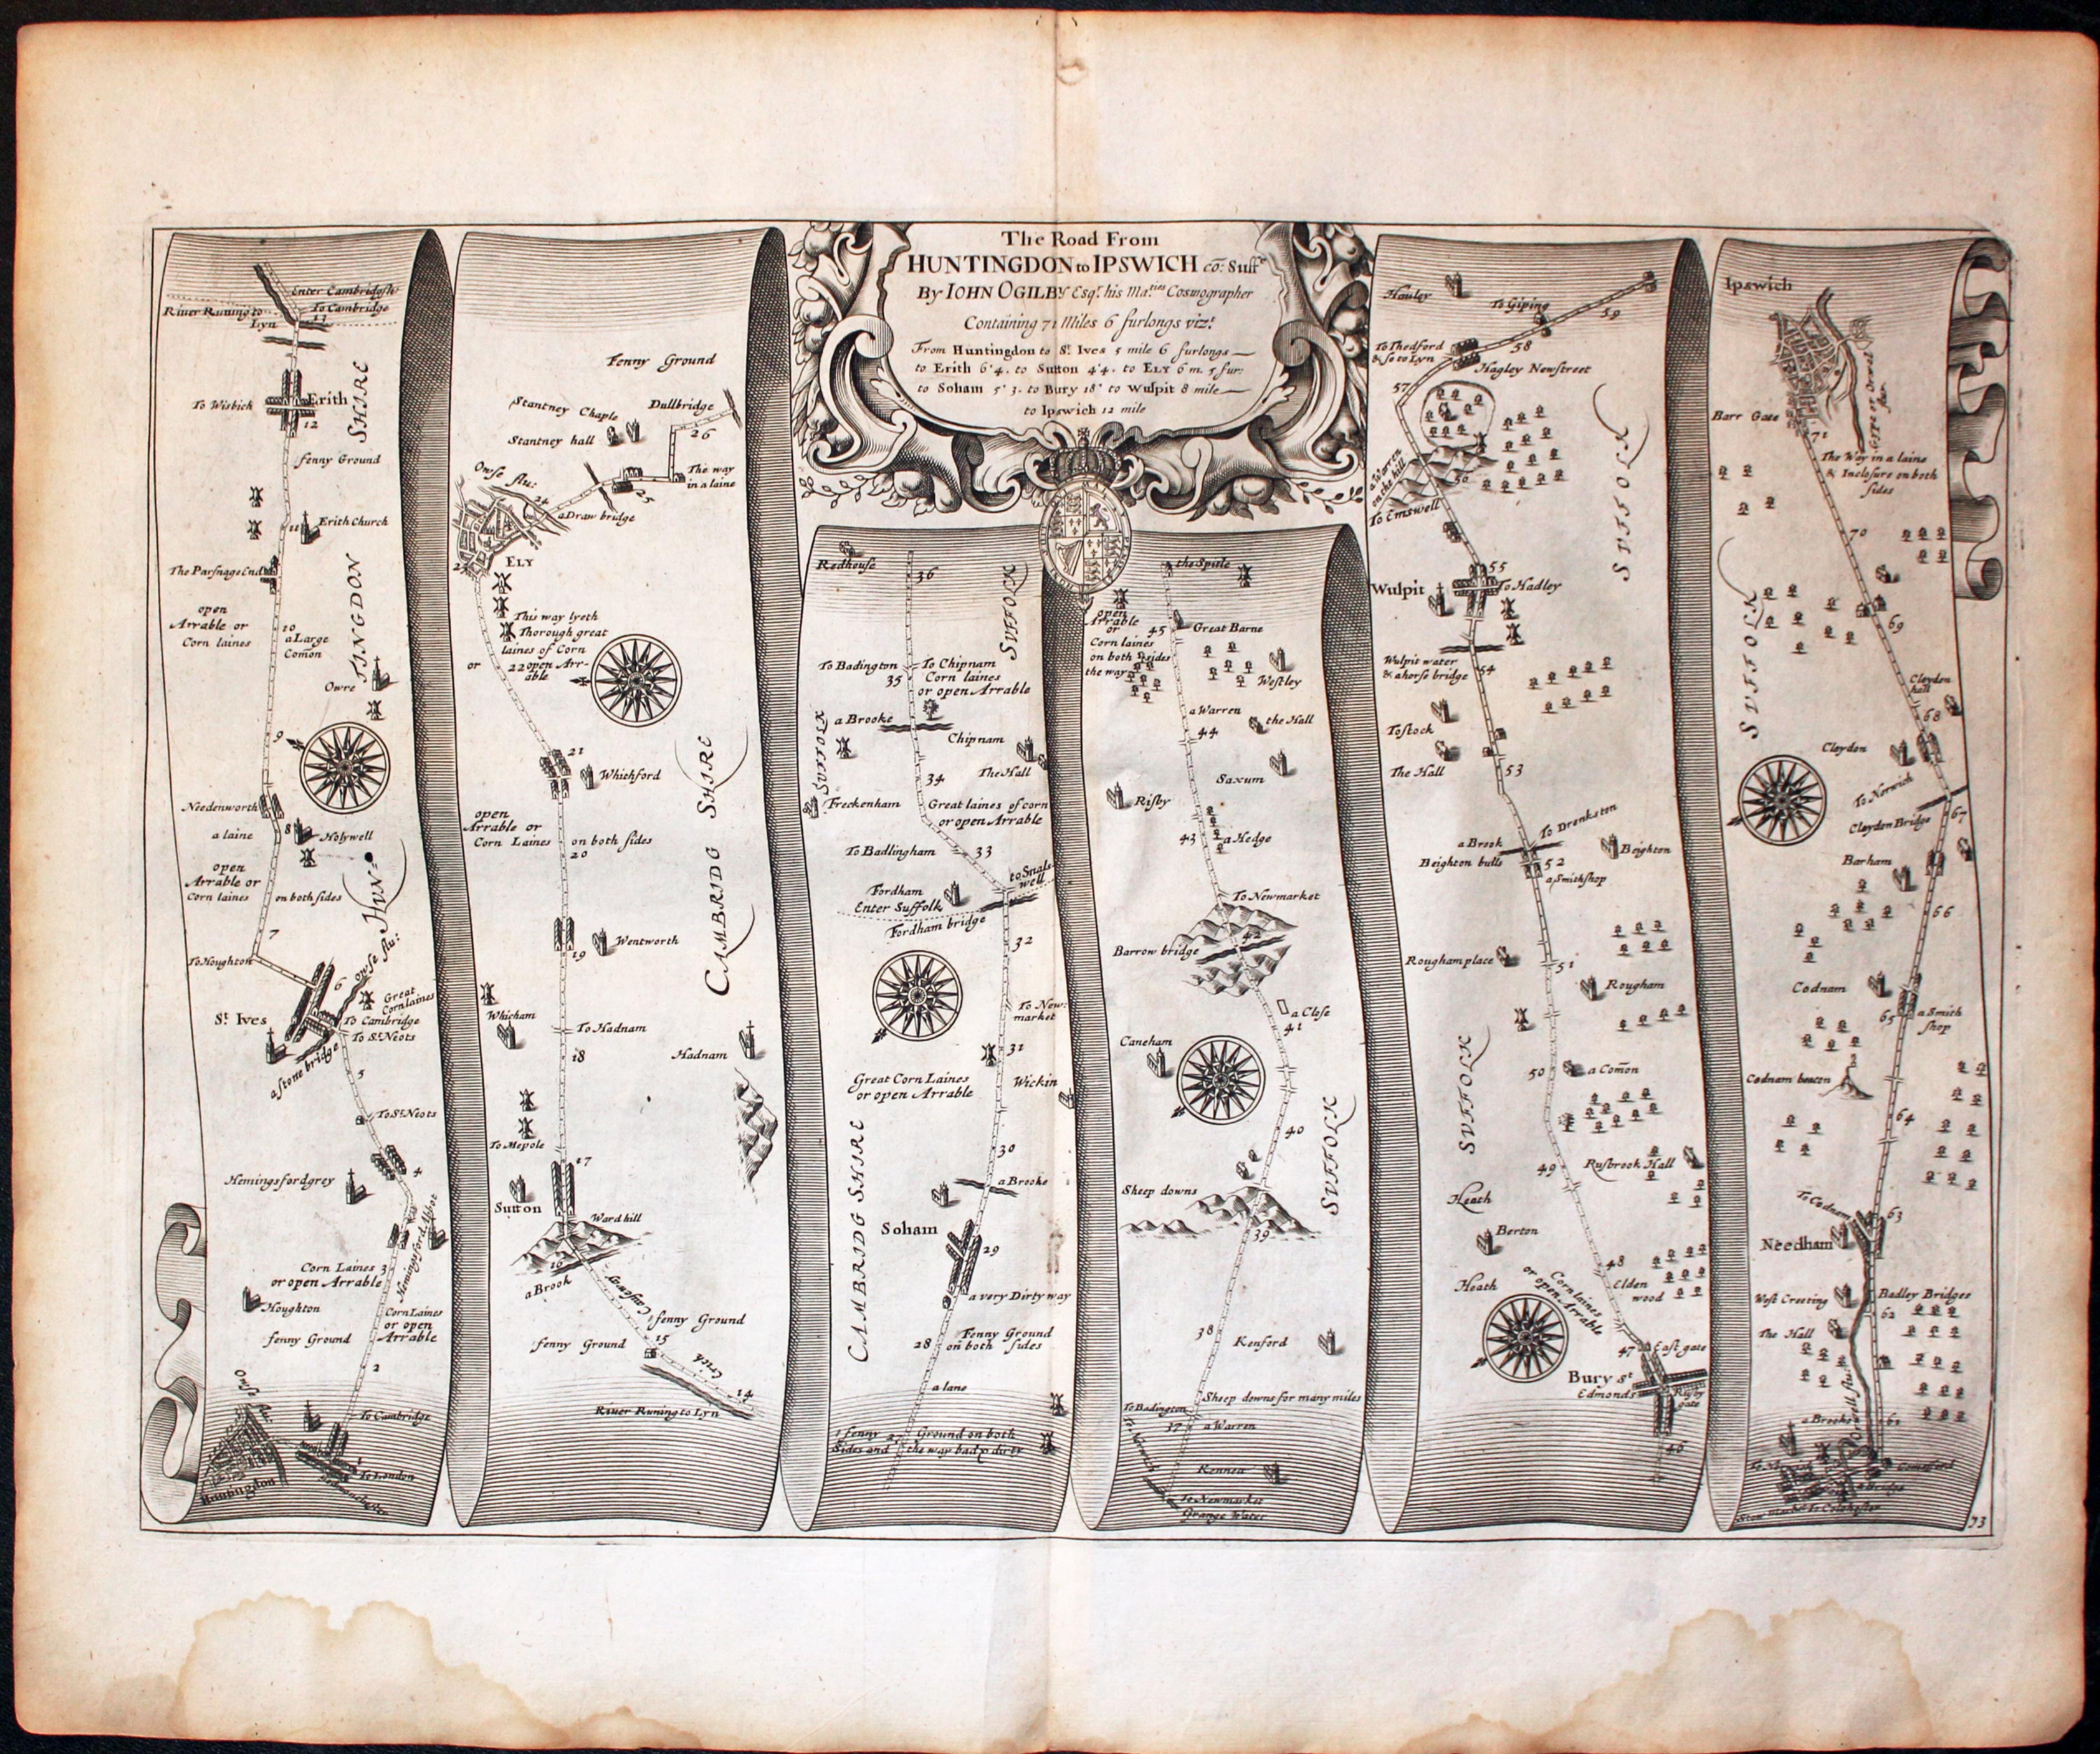 The Road From
HUNTINGDON to IPSWICH cō: Suffᵉ
By IOHN OGILBY Esqʳ. his Maᵗⁱᵉˢ Cosmographer
Containing 71 Miles 6 furlongs vizᵗ
From Huntingdon to Sᵗ. Ives 5 mile 6 furlongs
to Erith 6'4. to Sutton 4'4. to ELY 6 m. 5 fur:
to Soham 5' 3. to Bury 18' to Wulpit 8 mile
to Ipswich 12 mile
Enter Cambridgsh
River Runing to
Lyn
To Cambridge
13
To Wisbich
Erith
12
fenny Ground
SHIRE
11
Erith Church
The Parsnage End
open
Arrable or
Corn laines
10
a Large
Comōn
TINGDON
Owre
9
Needenworth
a laine
8
Holywell
open
Arrable or
Corn laines
on both sides
HUN=
7
To Houghton
6
owse flu:
Great
Cornlaines
Sᵗ. Ives
To Cambridge
To Sᵗ Neots
a stone bridge
5
To Sᵗ Neots
4
Hemingsfordgrey
Hemingsford Abbot
Corn Laines
or open Arrable
3
Houghton
Corn Laines
or open
Arrable
fenny Ground
2
Owse flu:
To Cambridge
To London
Huntingdon
Fenny Ground
Stantney Chaple
Dullbridge
Stantney hall
26
The way
in a laine
25
Owse flu:
24
a Draw bridge
ELY
23
This way lyeth
Thorough great
laines of Corn
or
22
open Arr-
able
21
Whichford
open
Arrable or
Corn Laines
on both sides
20
CAMBRIDG SHIRE
Wentworth
19
Whicham
To Hadnam
18
Hadnam
To Mepole
17
Sutton
Ward hill
16
a Brook
Causway
fenny Ground
15
fenny Ground
Erith
14
River Runing to Lyn
Redhouse
36
SUFFOLK
To Badington
To Chipnam
35
Corn laines
or open Arrable
a Brooke
Chipnam
SUFFOLK
34
The Hall
Freckenham
Great laines of corn
or open Arrable
To Badlingham
33
to Snale
well
Fordham
Enter Suffolk
Fordham bridge
32
To New:
market
31
Great Corn Laines
or open Arrable
Wickin
30
CAMBRIDG SHIRE
a Brooke
Soham
29
a very Dirty way
28
Fenny Ground
on both sides
a lane
fenny
27
Ground on both
Sides and
the way bad & dirty
the Spitle
open
Arrable
or
Corn laines
on both sides
the way
45
Great Barne
Westley
a Warren
the Hall
44
Saxum
Risby
43
a Hedge
To Newmarket
42
Barrow bridge
a Close
41
Caneham
40
SUFFOLK
Sheep downs
39
38
Kenford
Sheep downs for many miles
To Badington
37
a Warren
To Norwich
Kennea
To Newmarket
Grange Water
Hauley
To Giping
59
To Thedford
& so to Lyn
58
Hagley Newstreet
57
a Warren
on the hill
56
SUFFOLK
To Emswell
55
Wulpit
To Hadley
Wulpit water
& a horse bridge
54
Tostock
The Hall
53
To Drenkston
a Brook
Beighton bulls
52
Beighton
a Smith shop
Rougham place
51
Rougham
SUFFOLK
50
a Comōn
49
Rusbrook Hall
Heath
Berton
48
Elden
wood
Heath
Corn laines
or open Arrable
47
East gate
Bury Sᵗ
Edmonds
Risby
gate
46
Ipswich
Gype or Orwel
flu:
Barr Gate
71
The Way in a laine
& Inclosure on both
sides
70
69
SUFFOLK
Cleydon
hall
68
Cleydon
To Norwich
Cleydon Bridge
67
Barham
66
Codnam
65
a Smith
shop
Codnam beacon
64
To Codnam
63
Needham
West Creeting
Badley Bridges
62
The Hall
a Brooke
61
To Colchester
73